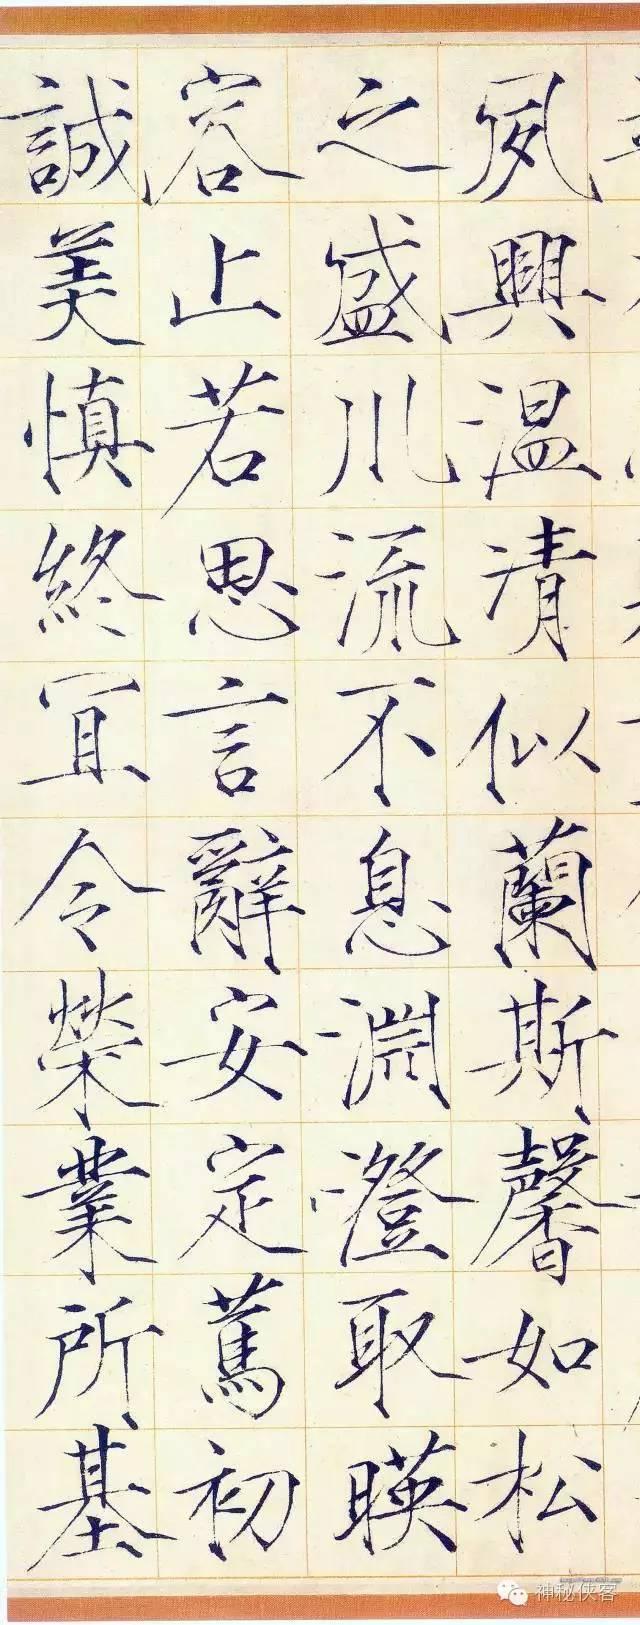 夙興温凊似蘭斯馨如松
之盛川流不息淵澄取暎
容止若思言辭安定篤初
誠美慎終宜令榮業所基
神秘侠客